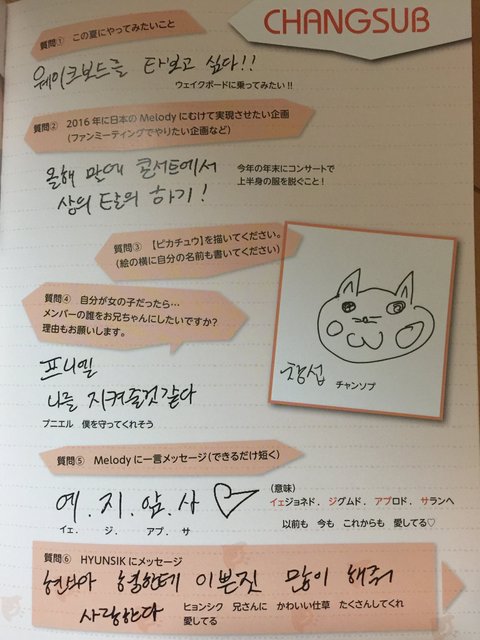 CHANGSUB
質問① この夏にやってみたいこと
웨이크보드를 타보고 싶다!!
ウェイクボードに乗ってみたい!!
質問② 2016年に日本のMelodyにむけて実現させたい企画
(ファンミーティングでやりたい企画など)
올해 말에 콘서트에서
상의 탈의 하기!
今年の年末にコンサートで
上半身の服を脱ぐこと!
質問③ 【ピカチュウ】を描いてください。
(絵の横に自分の名前も書いてください)
창섭
チャンソプ
質問④ 自分が女の子だったら…
メンバーの誰をお兄ちゃんにしたいですか?
理由もお願いします。
프니엘
나를 지켜줄것같다
プニエル 僕を守ってくれそう
質問⑤ Melodyに一言メッセージ(できるだけ短く)
예.지.앞.사♡
イェ. ジ. アプ. サ
(意味)
イェジョネド.ジグムド.アプロド.サランヘ
以前も 今も これからも 愛してる♡
質問⑥ HYUNSIKにメッセージ
현식아 형한테 이쁜짓 많이 해줘
사랑한다
ヒョンシク 兄さんに かわいい仕草 たくさんしてくれ
愛してる